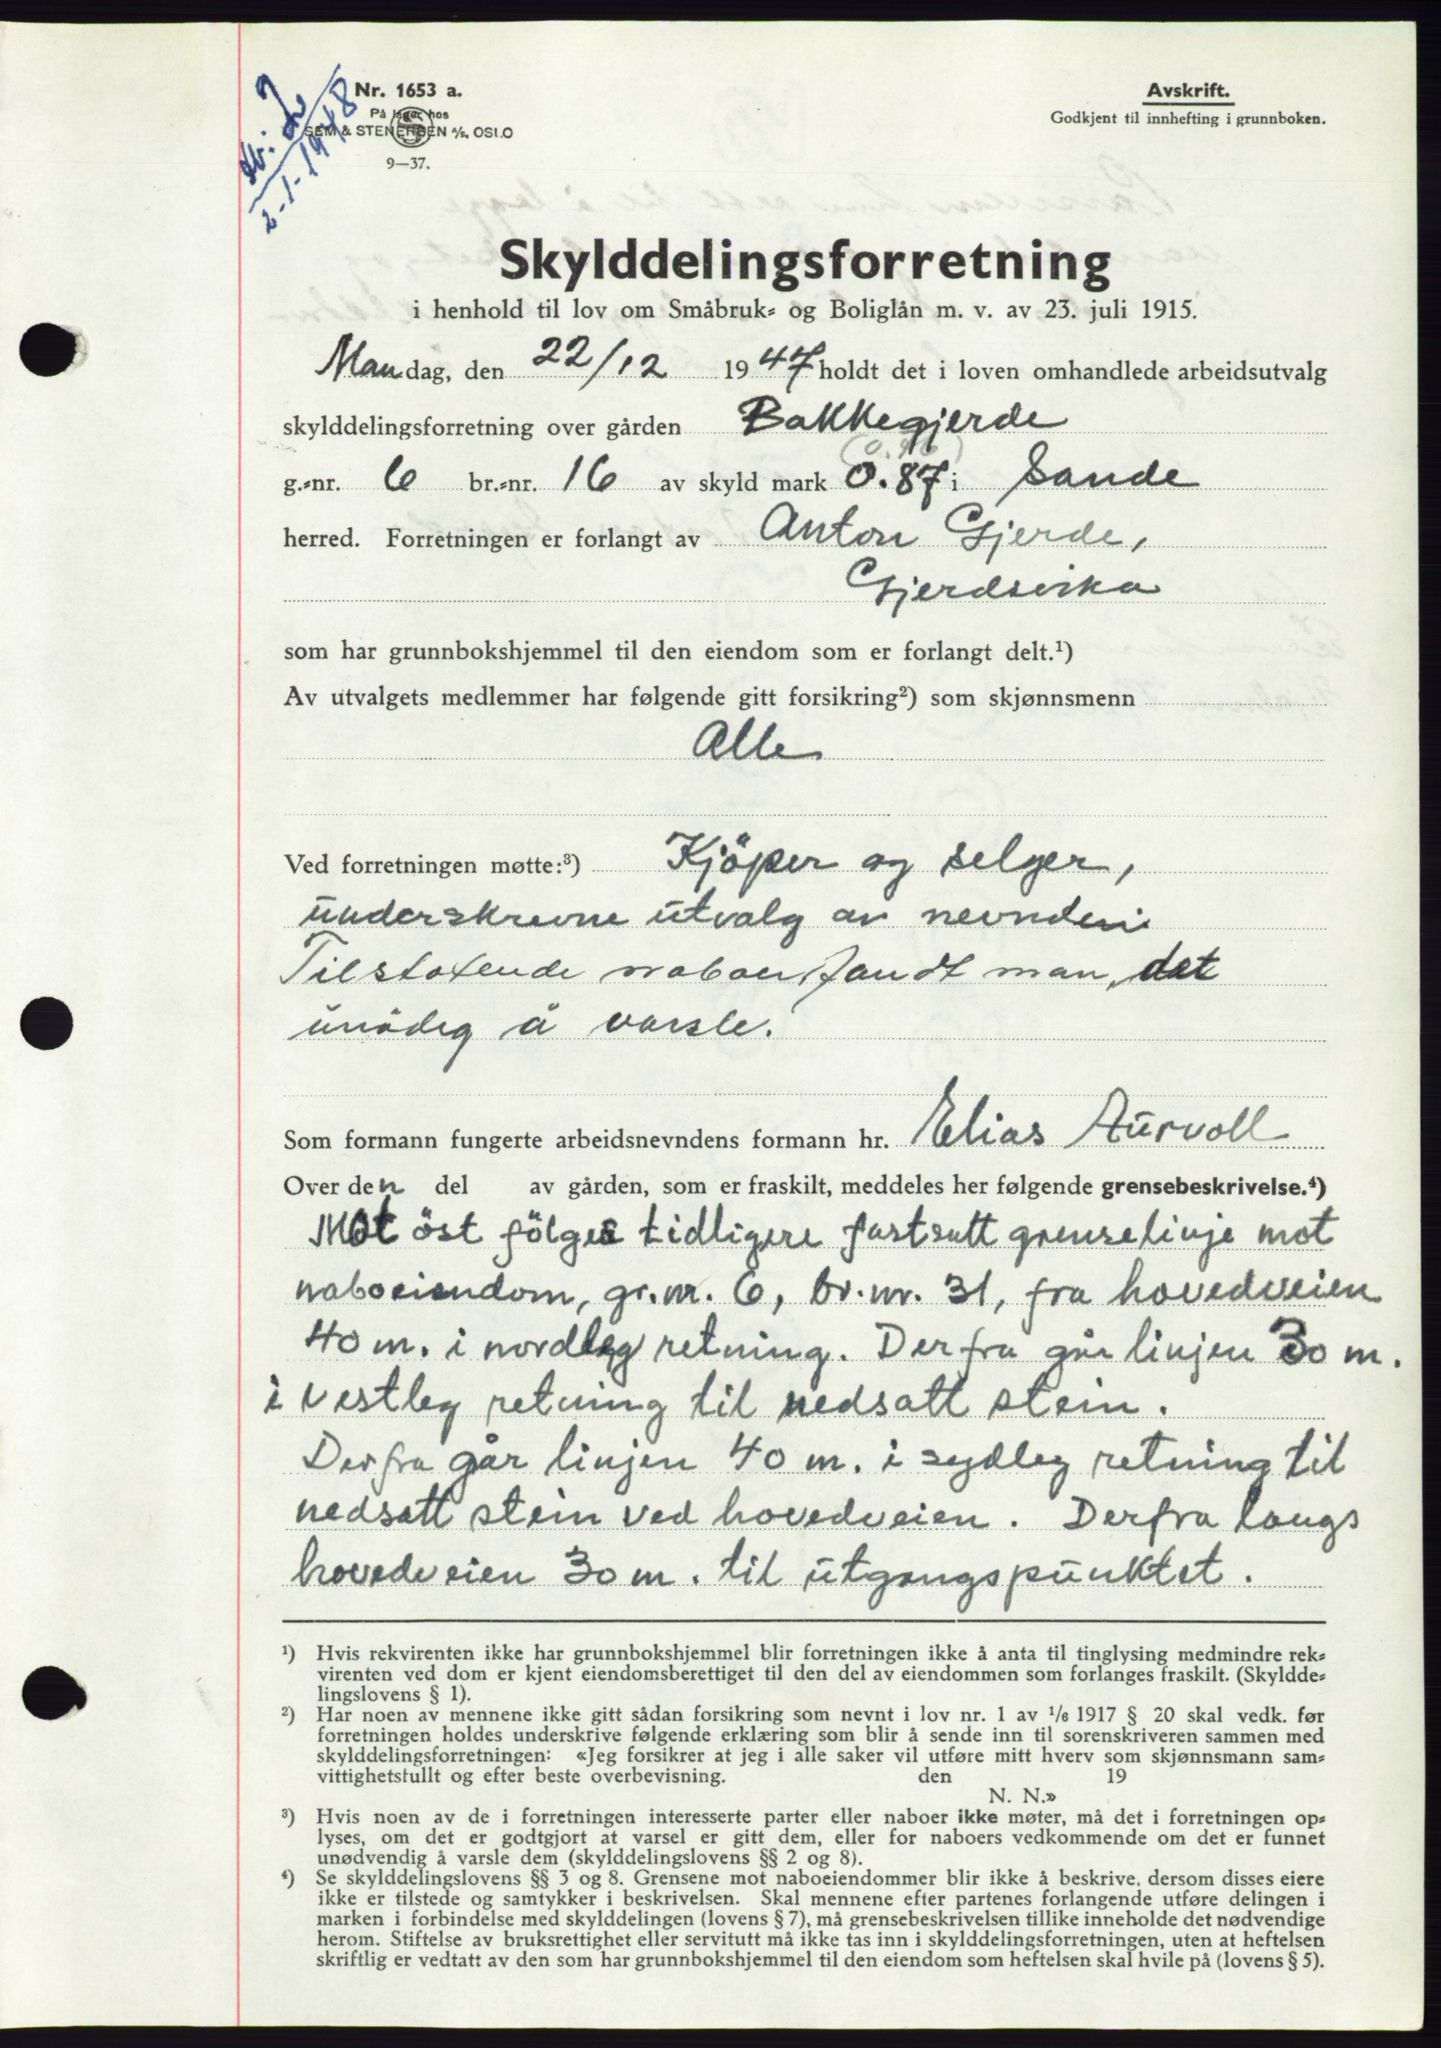 Nr. 1653 a.
På lager hos
SEM & STENERSEN A/S, OSLO
9—37.
2
2-1-1948
Avskrift.
Godkjent til innhefting i grunnboken.
Skylddelingsforretning
i henhold til lov om Småbruk- og Boliglån m. v. av 23. juli 1915.
Mandag, den 22/12 1947 holdt det i loven omhandlede arbeidsutvalg
skylddelingsforretning over gården Bakkegjerde
g.-nr. 6 br.-nr. 16 av skyld mark 0.87 i Sande
herred. Forretningen er forlangt av Anton Gjerde,
Gjerdsvika
som har grunnbokshjemmel til den eiendom som er forlangt delt.¹)
Av utvalgets medlemmer har følgende gitt forsikring²) som skjønnsmenn
Alle
Ved forretningen møtte:³) Kjöper og selger,
underskrevne utvalg av nevnden.
Tilstøtende naboer fandt man det
unödig å varsle.
Som formann fungerte arbeidsnevndens formann hr. Elias Aurvoll
Over den del av gården, som er fraskilt, meddeles her følgende grensebeskrivelse.⁴)
Mot öst fölges tidligere fastsatt grenselinje mot
naboeiendom, gr.nr. 6, br.nr. 31, fra hovedveien
40 m. i nordleg retning. Derfra går linjen 30 m.
i vestleg retning til nedsatt stein.
Derfra går linjen 40 m. i sydleg retning til
nedsatt stein ved hovedveien. Derfra langs
hovedveien 30 m. til utgangspunktet.
¹) Hvis rekvirenten ikke har grunnbokshjemmel blir forretningen ikke å anta til tinglysing medmindre rek-
virenten ved dom er kjent eiendomsberettiget til den del av eiendommen som forlanges fraskilt. (Skyldde-
lingslovens § 1).
²) Har noen av mennene ikke gitt sådan forsikring som nevnt i lov nr. 1 av 1/6 1917 § 20 skal vedk. før
forretningen holdes underskrive følgende erklæring som blir å sende inn til sorenskriveren sammen med
skylddelingsforretningen: «Jeg forsikrer at jeg i alle saker vil utføre mitt hverv som skjønnsmann sam-
vittighetsfullt og efter beste overbevisning. den 19
N. N.»
³) Hvis noen av de i forretningen interesserte parter eller naboer ikke møter, må det i forretningen op-
lyses, om det er godtgjort at varsel er gitt dem, eller for naboers vedkommende om det er funnet
unødvendig å varsle dem (skylddelingslovens §§ 2 og 8).
⁴) Se skylddelingslovens §§ 3 og 8. Grensene mot naboeiendommer blir ikke å beskrive, dersom disses eiere
ikke er tilstede og samtykker i beskrivelsen. Skal mennene efter partenes forlangende utføre delingen i
marken i forbindelse med skylddelingen (lovens § 7), må grensebeskrivelsen tillike inneholde det nødvendige
herom. Stiftelse av bruksrettighet eller servitutt må ikke tas inn i skylddelingsforretningen, uten at heftelsen
skriftlig er vedtatt av den som har grunnbokshjemmel til den eiendom som heftelsen skal hvile på (lovens § 5).